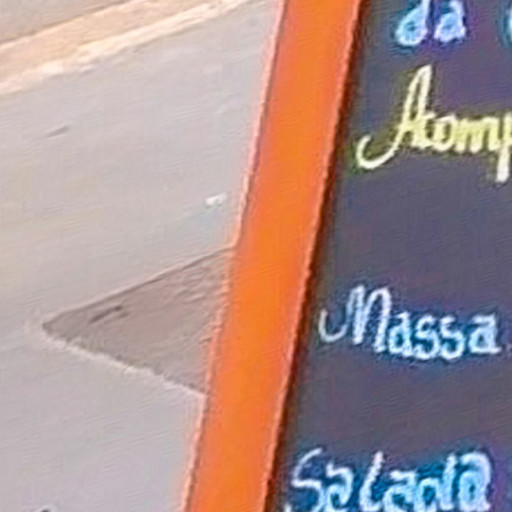 da
Acomp
Massa
Salada